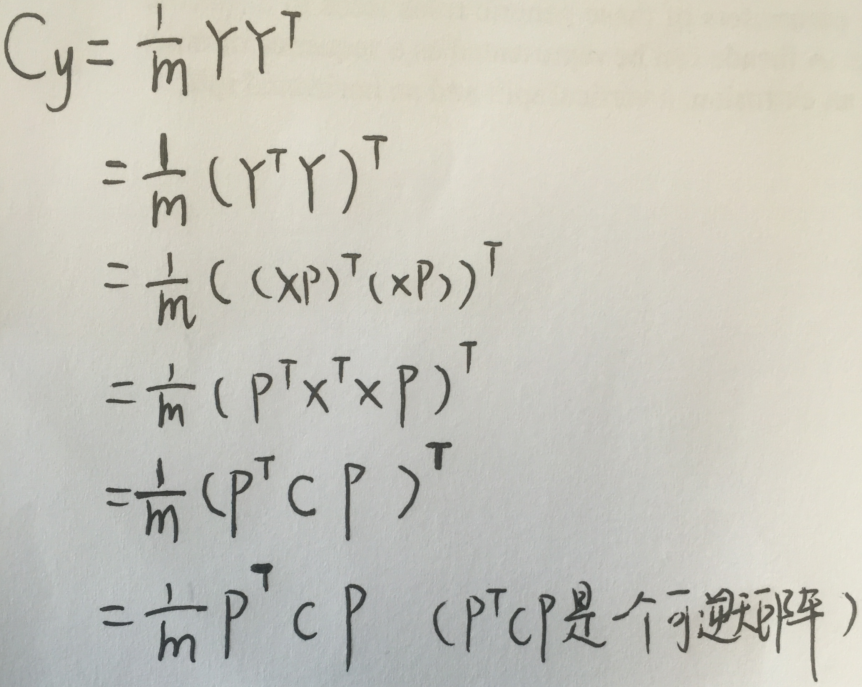 Cy = 1/m YYᵀ
= 1/m (YᵀY)ᵀ
= 1/m ((XP)ᵀ(XP))ᵀ
= 1/m (PᵀXᵀXP)ᵀ
= 1/m (PᵀCP)ᵀ
= 1/m PᵀCP (PᵀCP是个可逆矩阵)